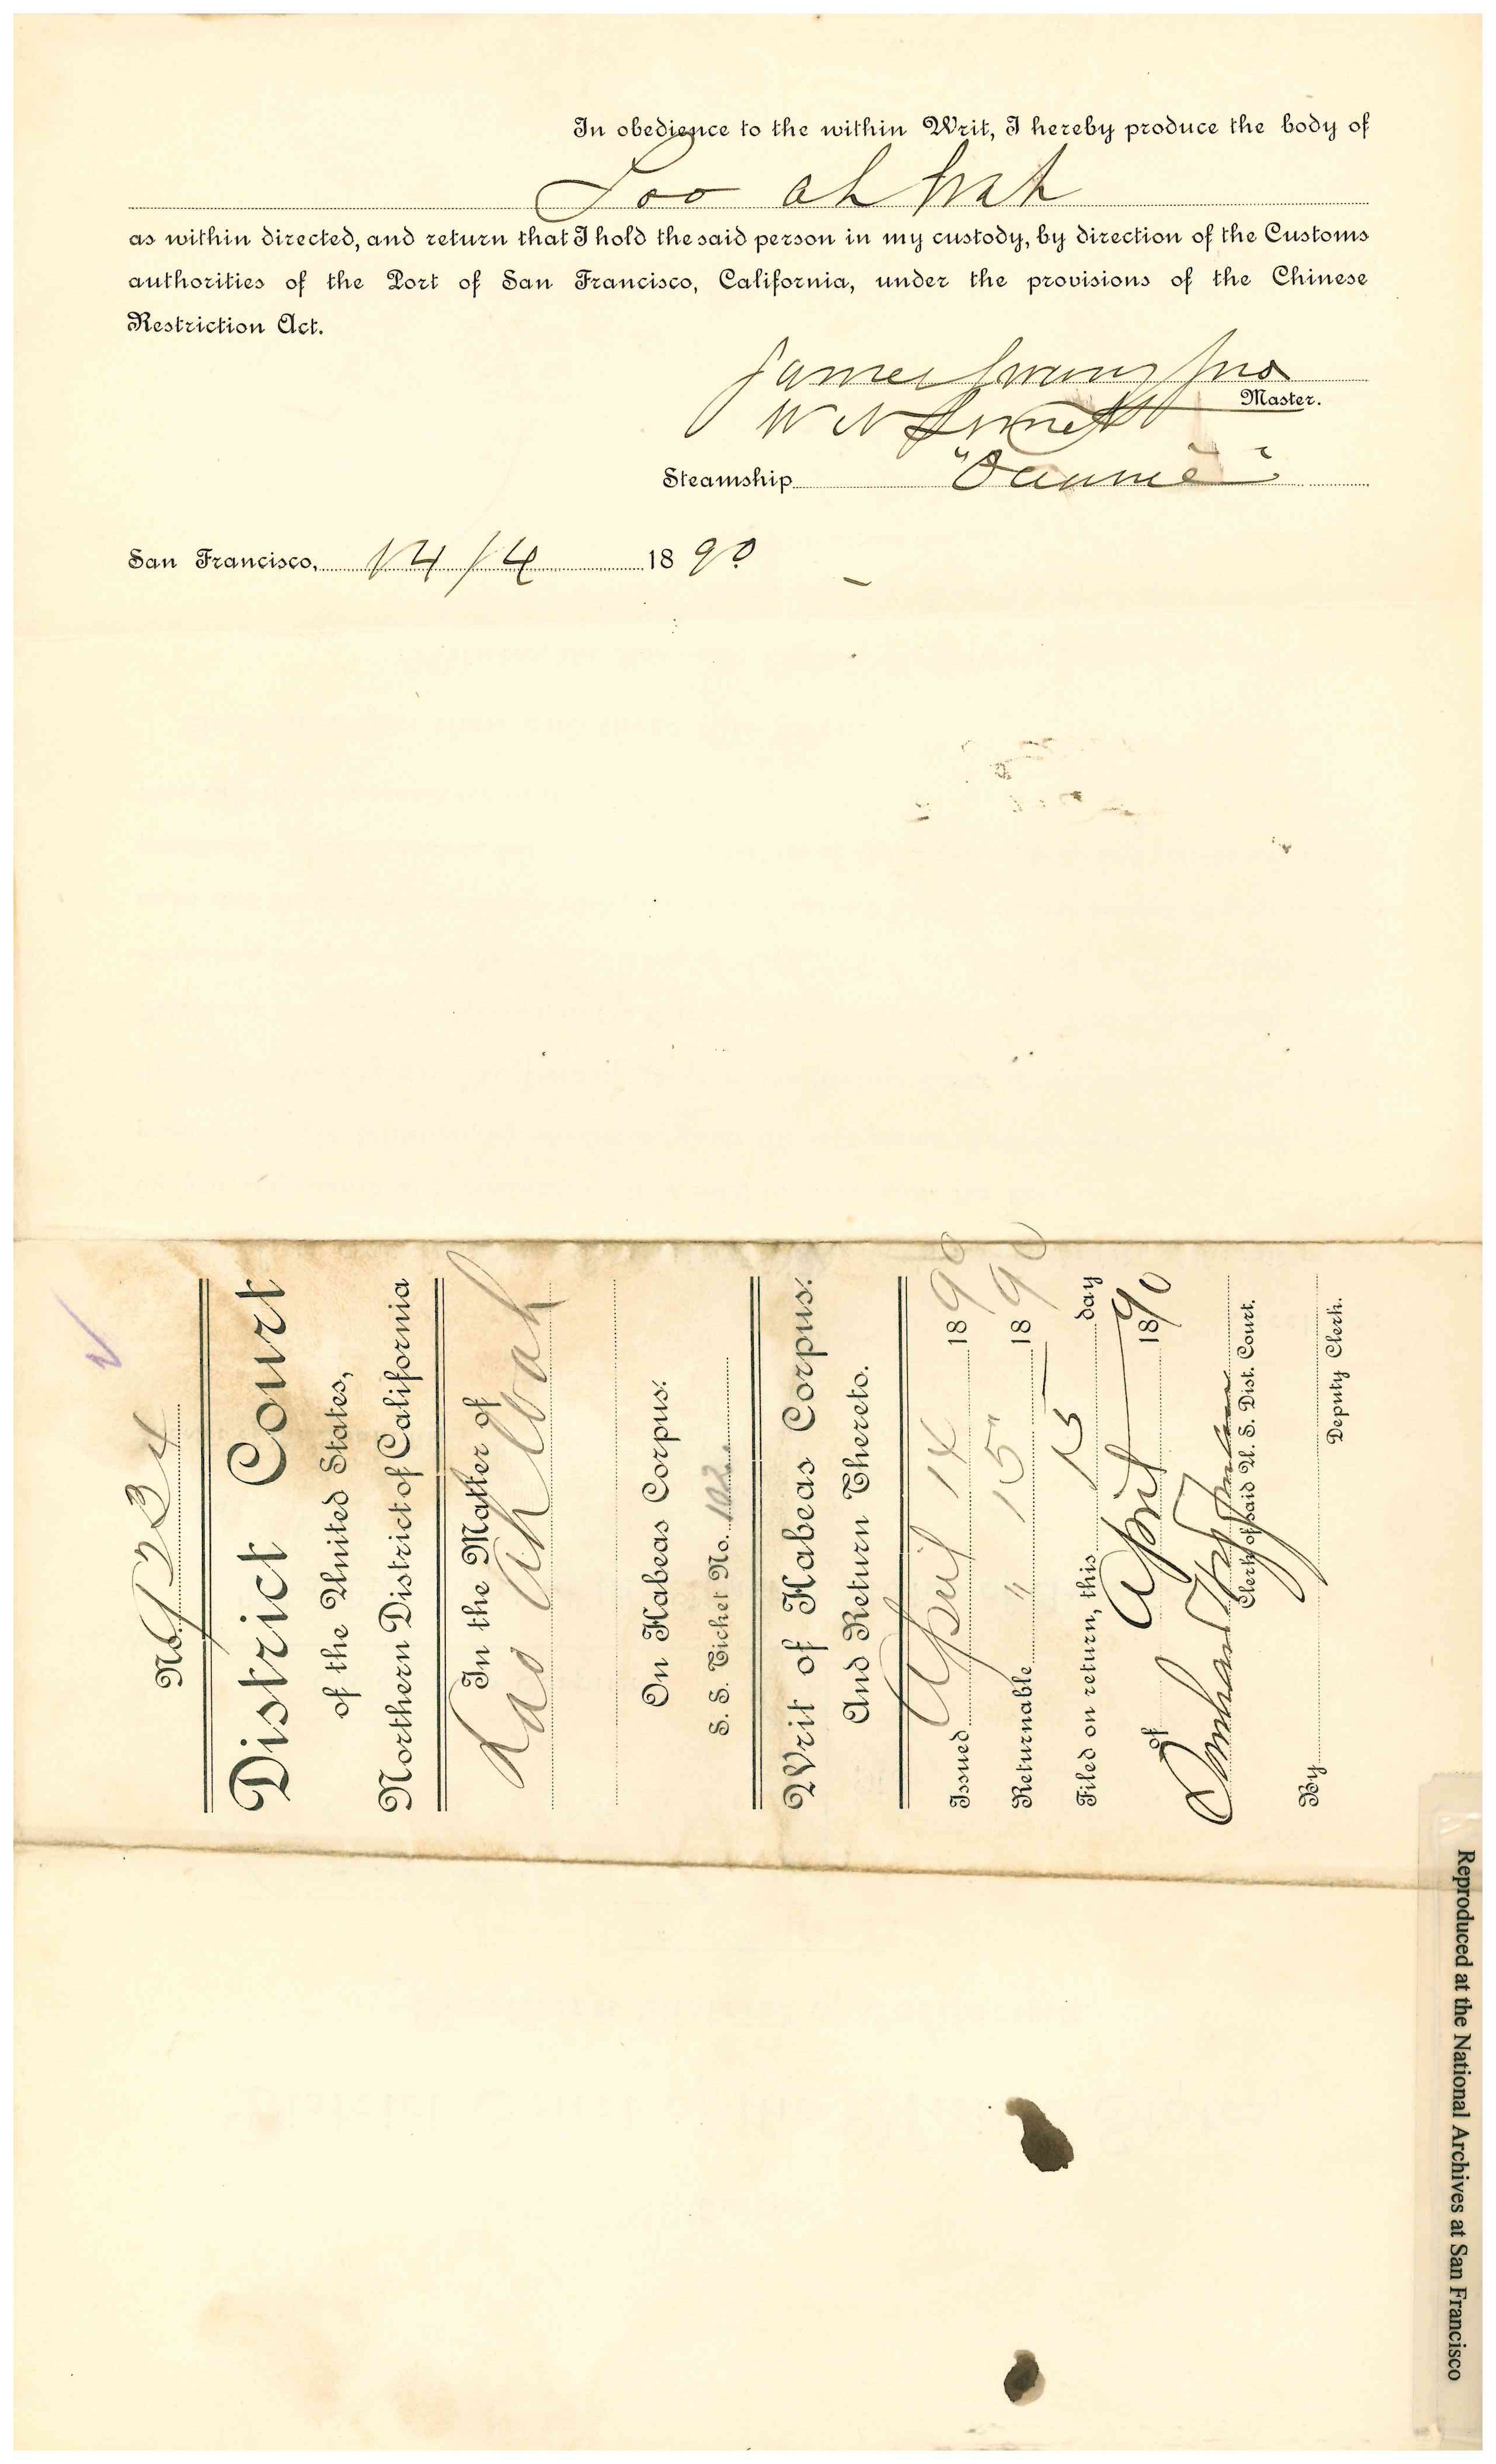 In obedience to the within Writ, I hereby produce the body of
Loo ah Wah
as within directed, and return that I hold the said person in my custody, by direction of the Customs
authorities of the Port of San Francisco, California, under the provisions of the Chinese
Restriction Act.
James
Master.
Steamship
San Francisco, 14/4 1890
No. 9234
District Court
of the United States,
Northern District of California
In the Matter of
Loo Ah Wah
On Habeas Corpus.
S. S. Ticket No. 102
Writ of Habeas Corpus.
And Return Thereto.
Issued April 14 1890
Returnable " 15" 1890
Filed on return, this 15 day
of April 1890
Southard Hoffman
Clerk of said U. S. Dist. Court.
By
Deputy Clerk.
Reproduced at the National Archives at San Francisco